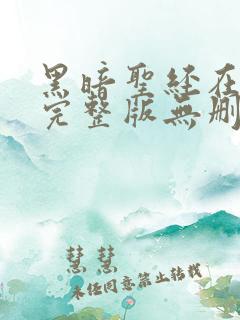 黑暗聖经在
完整版無删
慧慧
未经同意禁止转载